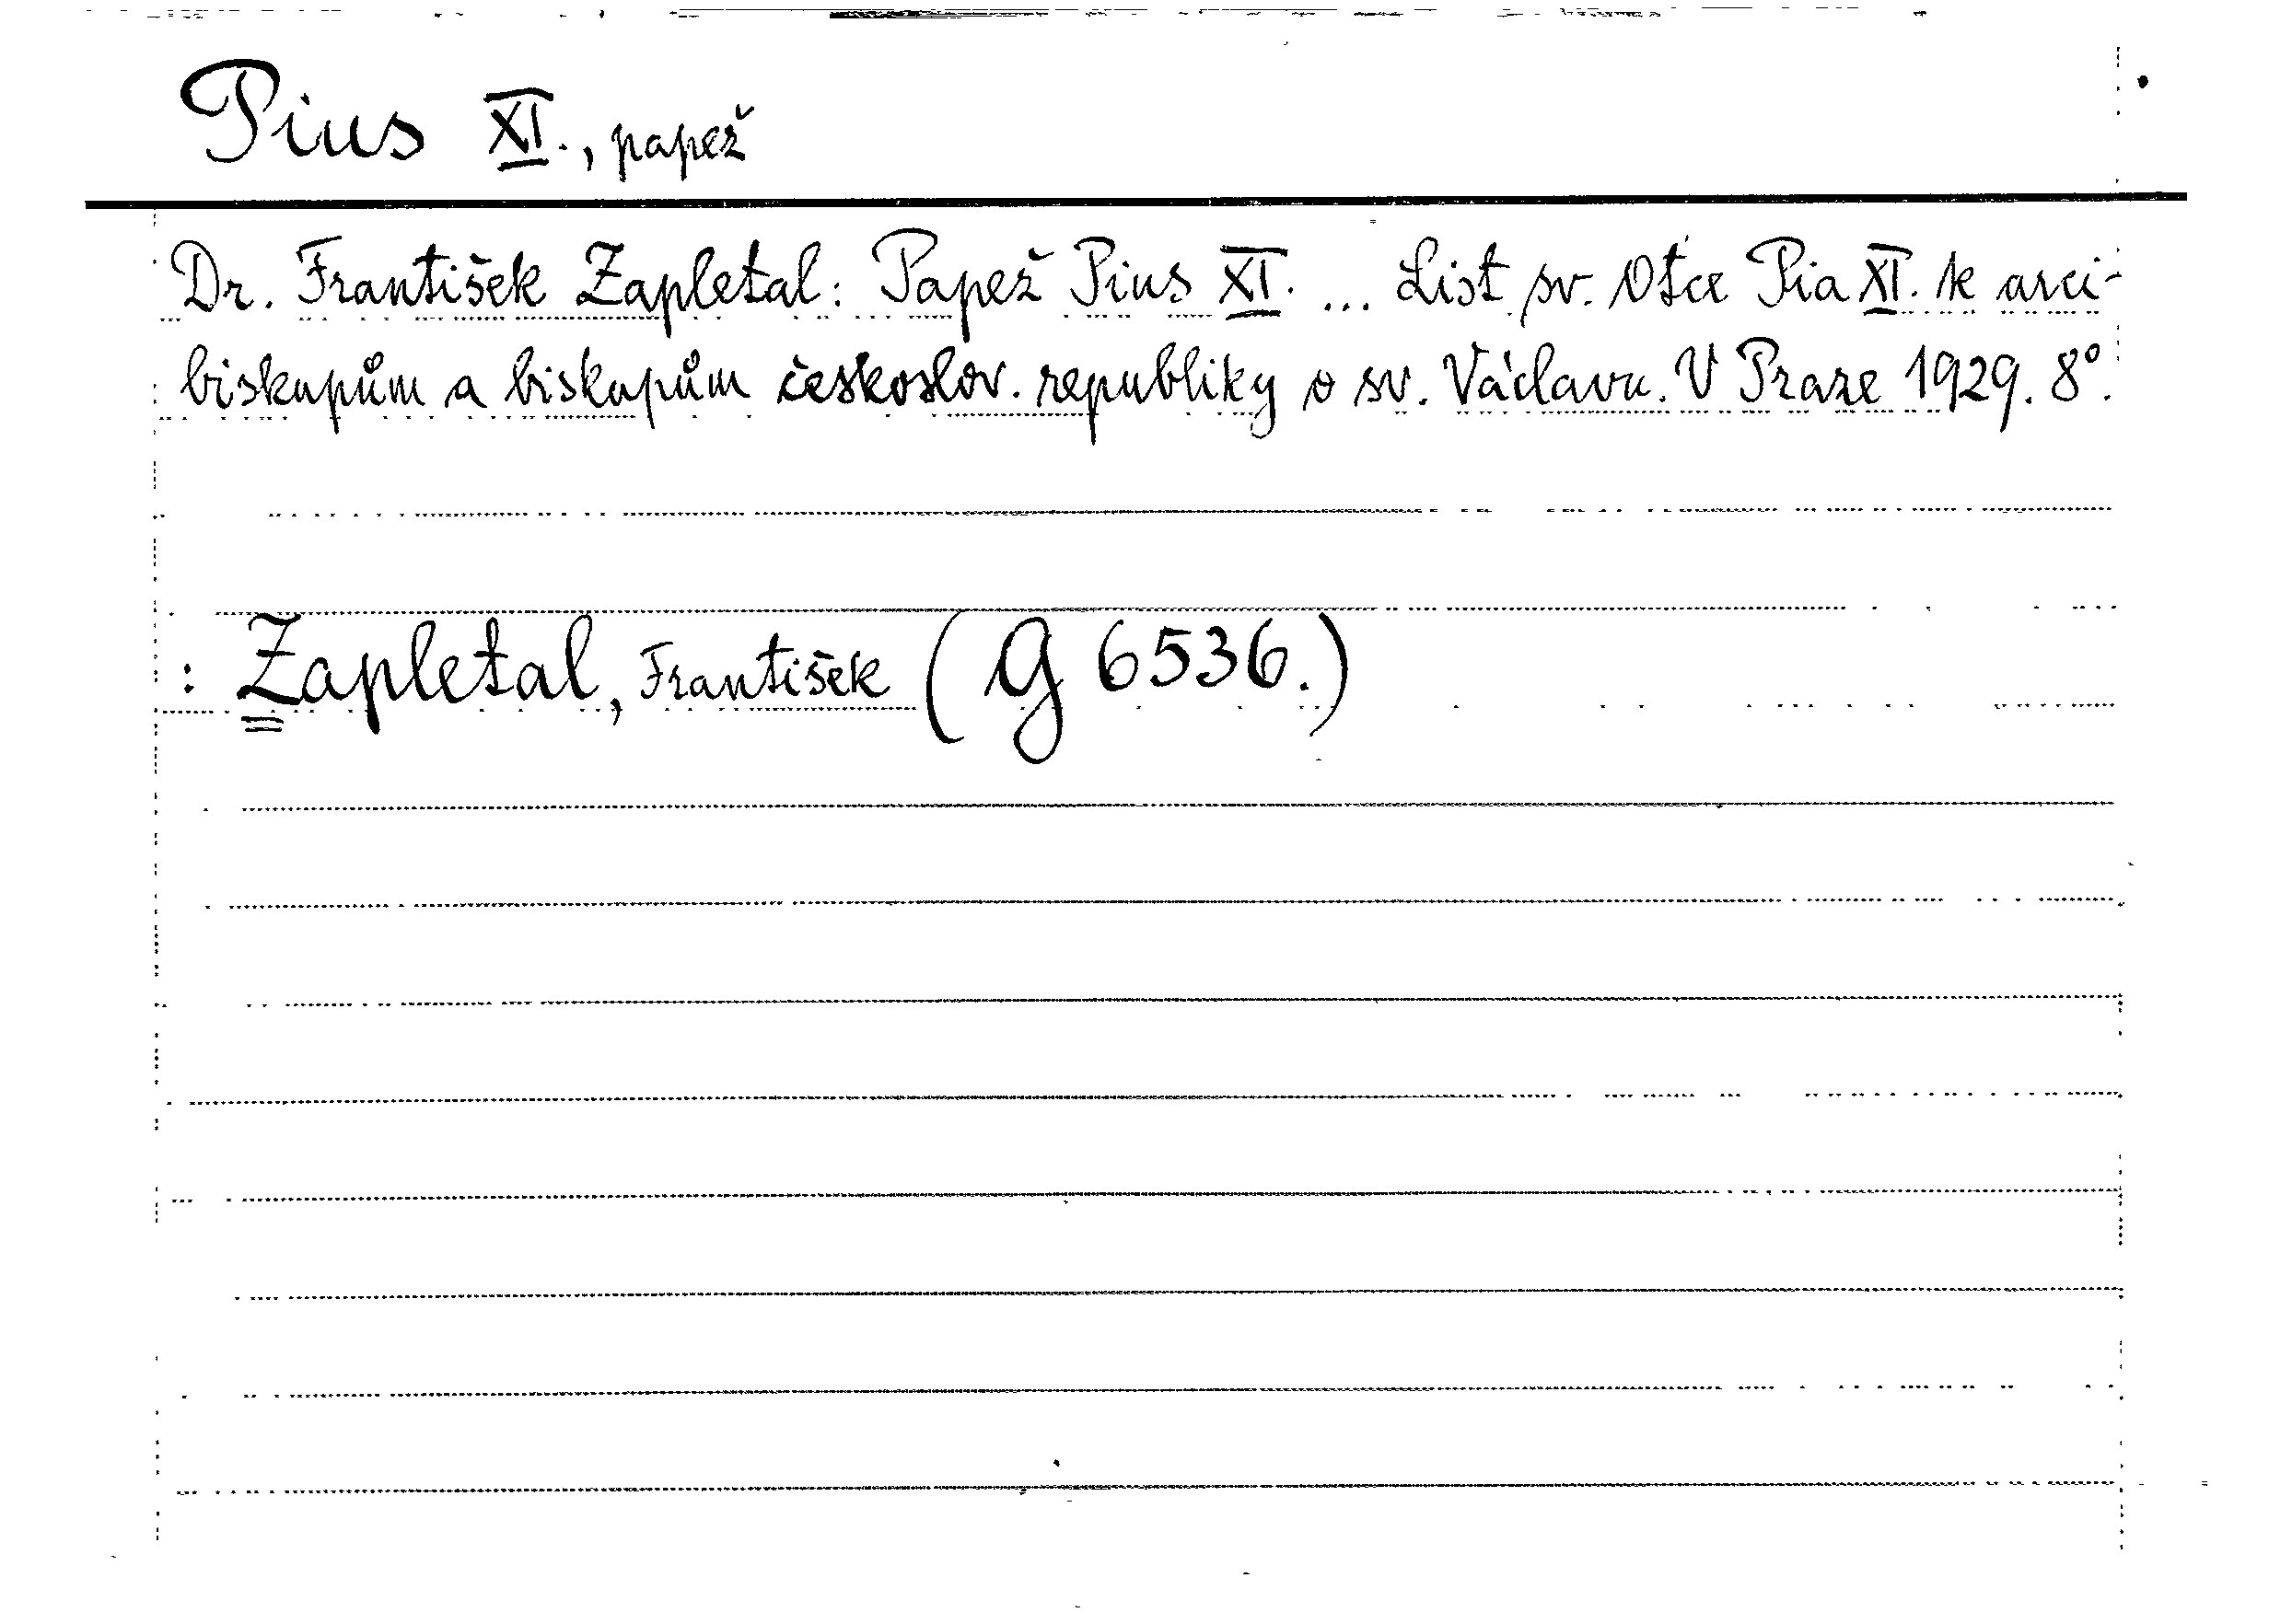 Pius XI., papež
Dr. František Zapletal: Papež Pius XI. ... List sv. Otce Pia XI. k arci-
biskupům a biskupům českoslov. republiky o sv. Václavu. V Praze 1929. 8°.
: Zapletal, František (G 6536.)